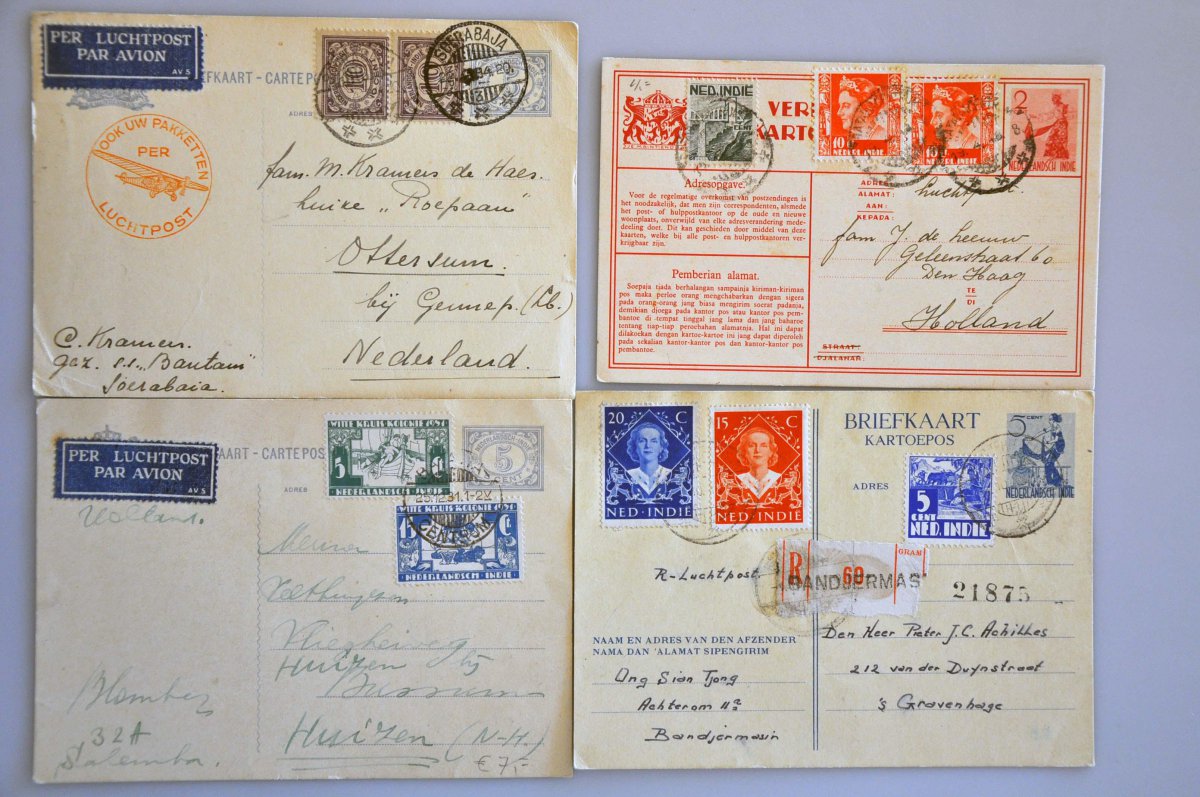 PER LUCHTPOST
PAR AVION
AV 5
BRIEFKAART – CARTE POS
ADRES
10
SOERABAJA
OOK UW PAKKETTEN
PER
LUCHTPOST
fam. M. Kramers de Haes.
huize „Roepaan"
Ottersum.
bij Gennep. (Lb.)
Nederland.
C. Kramers.
gez. s.s. „Bantam"
Soerabaia.
NED. INDIE
CENT
VERH
KART
10
NEDERL. INDIE
10
NEDERL. INDIE
2
NEDERLANDSCH INDIE
Adresopgave.
Voor de regelmatige overkomst van postzendingen is
het noodzakelijk, dat men zijn correspondenten, alsmede
het post- of hulppostkantoor op de oude en nieuwe
woonplaats, onverwijld van elke adresverandering mede-
deeling doet. Dit kan geschieden door middel van deze
kaarten, welke bij alle post- en hulppostkantoren ver-
krijgbaar zijn.
Pemberian alamat.
Soepaja tjada berhalangan sampainja kiriman-kiriman
pos maka perloe orang mengchabarkan dengan sigera
pada orang-orang jang biasa mengirim soerat padanja,
demikian djoega pada kantor pos atau kantor pos pem-
bantoe di tempat tinggal jang lama dan jang baharoe
tentang tiap-tiap perobahan alamatnja. Hal ini dapat
dilakoekan dengan kartoe-kartoe ini jang dapat diperoleh
pada sekalian kantor-kantor pos dan kantor-kantor pos
pembantoe.
ADRES
ALAMAT:
AAN:
KEPADA:
Luchtp
fam J. de Leeuw
Geleenstraat 60
Den Haag
TE
DI
Holland
STRAAT:
DJALANAN:
PER LUCHTPOST
PAR AVION
AV 5
KAART – CARTE POS
ADRES
WITTE KRUIS KOLONIE 1931
5 C
NEDERLANDSCH INDIE
NEDERLANDSCH-INDIE
5
25.12.31.1-2V
CENTRUM
WITTE KRUIS KOLONIE 1931
15 Ct
NEDERLANDSCH INDIE
Holland.
Huizen
Huizen (N-H.)
32A
Salemba.
€ 7,-
20 C
NED · INDIE
15 C
NED · INDIE
BRIEFKAART
KARTOEPOS
ADRES
5
CENT
NED. INDIE
5 CENT
NEDERLANDSCH INDIE
R
69
GRAM
BANDJERMAS
21875
R-Luchtpost
NAAM EN ADRES VAN DEN AFZENDER
NAMA DAN 'ALAMAT SIPENGIRIM
Ong Sian Tjong
Achterom 11a
Bandjermasin
Den Heer Pieter J.C. Achilles
212 van der Duynstraat
's Gravenhage